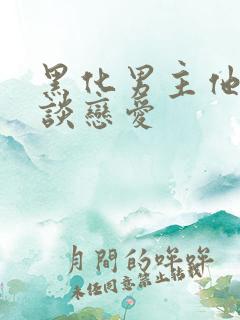 黑化男主他
談戀愛
月間的咩咩
未經同意禁止轉載